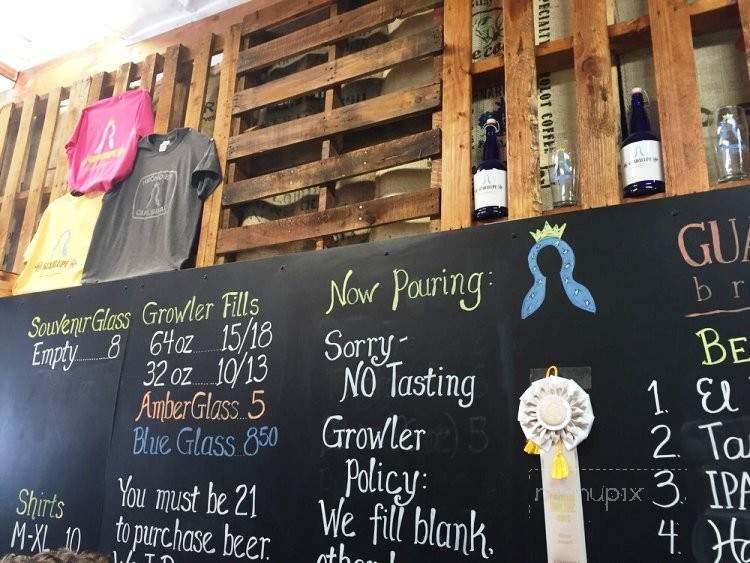 Souvenir Glass
Empty........8
Growler Fills
64 oz........15/18
32 oz........10/13
Amber Glass...5
Blue Glass...8 50
Shirts
M-XL 10
You must be 21
to purchase beer.
Now Pouring:
Sorry -
NO Tasting
Growler
Policy:
We fill blank,
GUA
br
BE
1. El
2. Ta
3. IPA
4. Ha
menupix